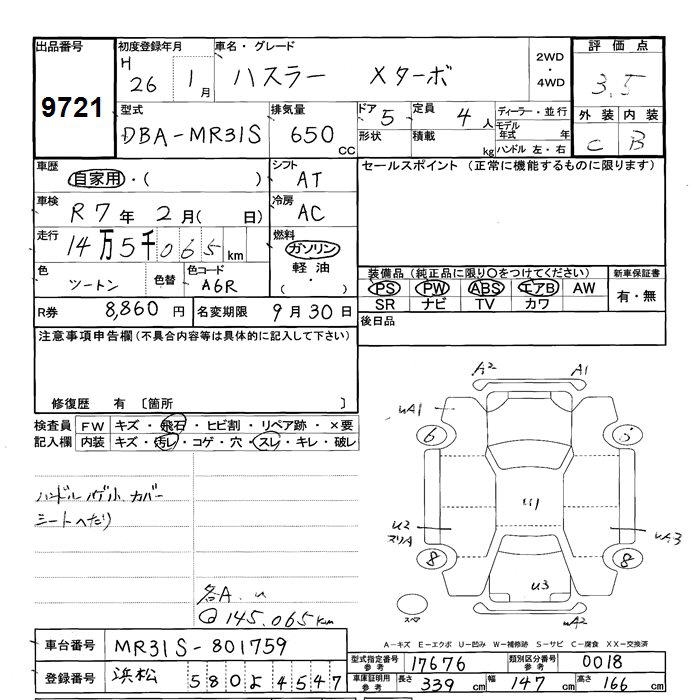 出品番号 初度登録年月 車名・グレード 評価点
9721 H 26 1月 ハスラー Xターボ 2WD・4WD 3.5
型式 排気量 ドア 5 定員 4人 ディーラー・並行 外装 内装
DBA-MR31S 650 CC 形状 積載 kg モデル年式 年 C B
ハンドル 左・右
車歴 自家用・( ) シフト AT セールスポイント (正常に機能するものに限ります)
車検 R7年 2月( 日) 冷房 AC
走行 14万5千065km 燃料 ガソリン 軽油 ( ・ )
色 ツートン 色替 色コード A6R 装備品 (純正品に限り○をつけてください) 新車保証書
PS PW ABS エアB AW 有・無
SR ナビ TV カワ
R券 8,860円 名変期限 9月30日 後日品
注意事項申告欄 (不具合内容等は具体的に記入して下さい)
修復歴 有 〔箇所 〕
検査員記入欄 FW キズ・飛石・ヒビ割・リペア跡・×要
内装 キズ・汚レ・コゲ・穴・スレ・キレ・破レ
シートへたり
各A.u
145.065Km
A2 A1
uA1
6 5
u1
u2 uA3
8 8
u3
スペア uA2
A－キズ E－エクボ U－凹み W－補修跡 S－サビ C－腐食 XX－交換済
車台番号 MR31S-801759
登録番号 浜松 580 よ 4547
型式指定番号 参考 17676 類別区分番号 参考 0018
車庫証明用 参考 長さ 339 cm 幅 147 cm 高さ 166 cm